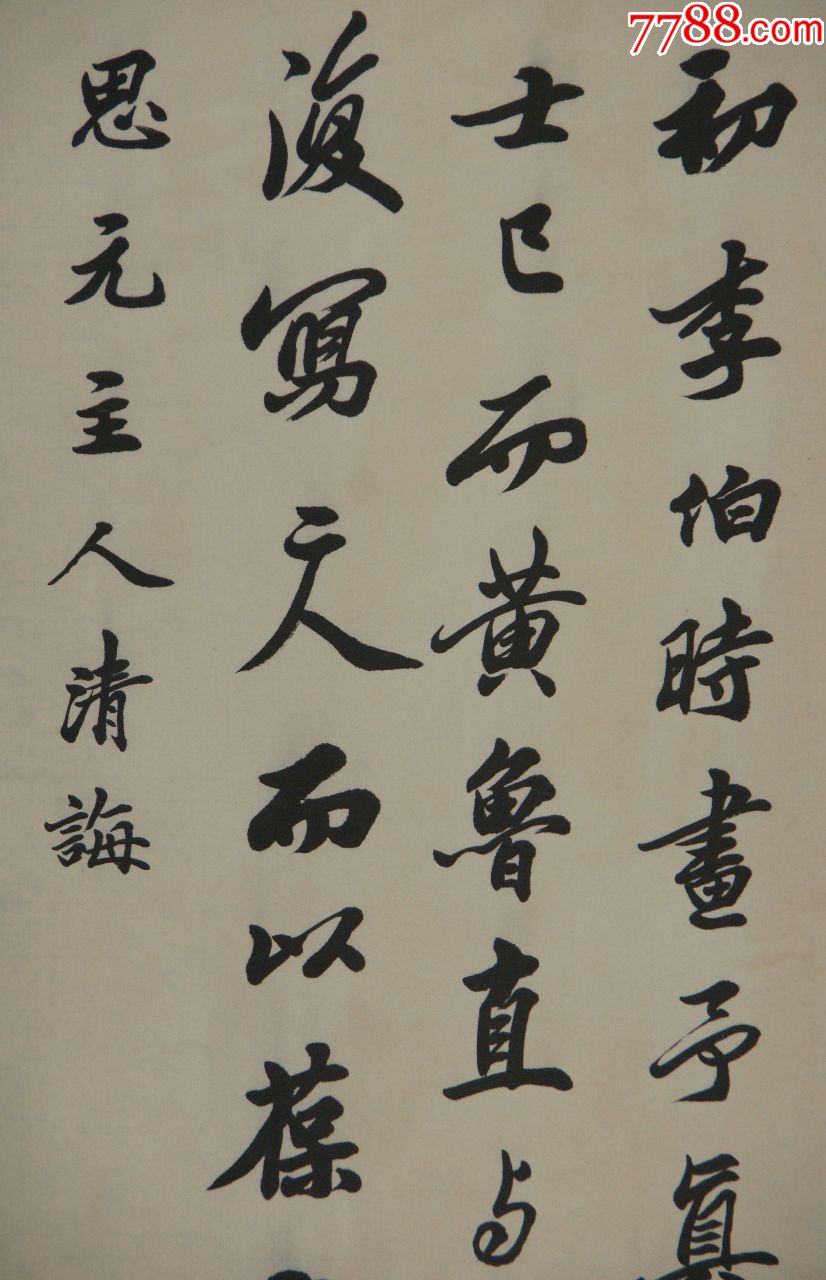 7788.com
初李伯時畫予真
士已而黃魯直与
復寫一人而以葆
思元主人清誨